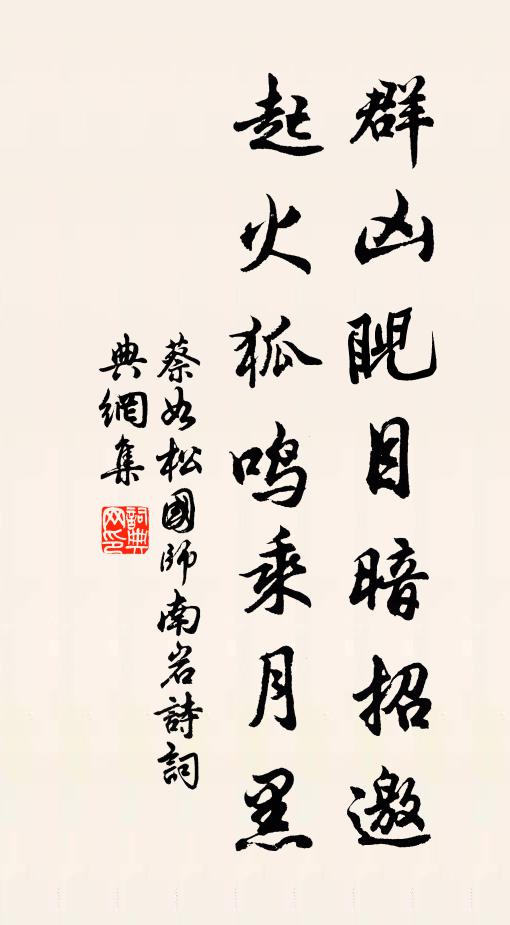 群凶睨目暗招邀
起火狐鸣乘月黑
蔡如松國師南岩詩詞
典網集
詞典
网印